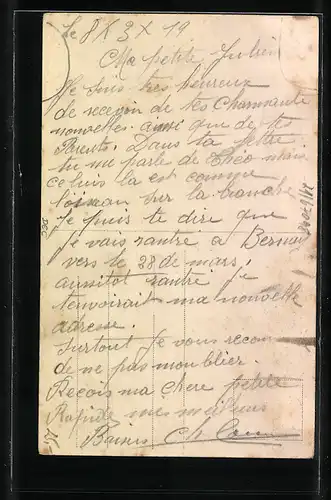 Le 8 X 3 X 19
Ma petite Julien
Je suis très heureux
de recevoir de tes charmante
nouvelles ainsi que de tes
Parents. Dans ta lettre
tu me parle de Théo mais
celuis la est comme
l'oiseau sur la branche
je puis te dire que
je vais rantré a Bernay
vers le 28 de mars,
aussitot rantré je
t'envoirait ma nouvelle
adresse.
Surtout je vous recom
de ne pas m'oublier.
Recois ma chere petite
mes meilleurs
Baisers Ch